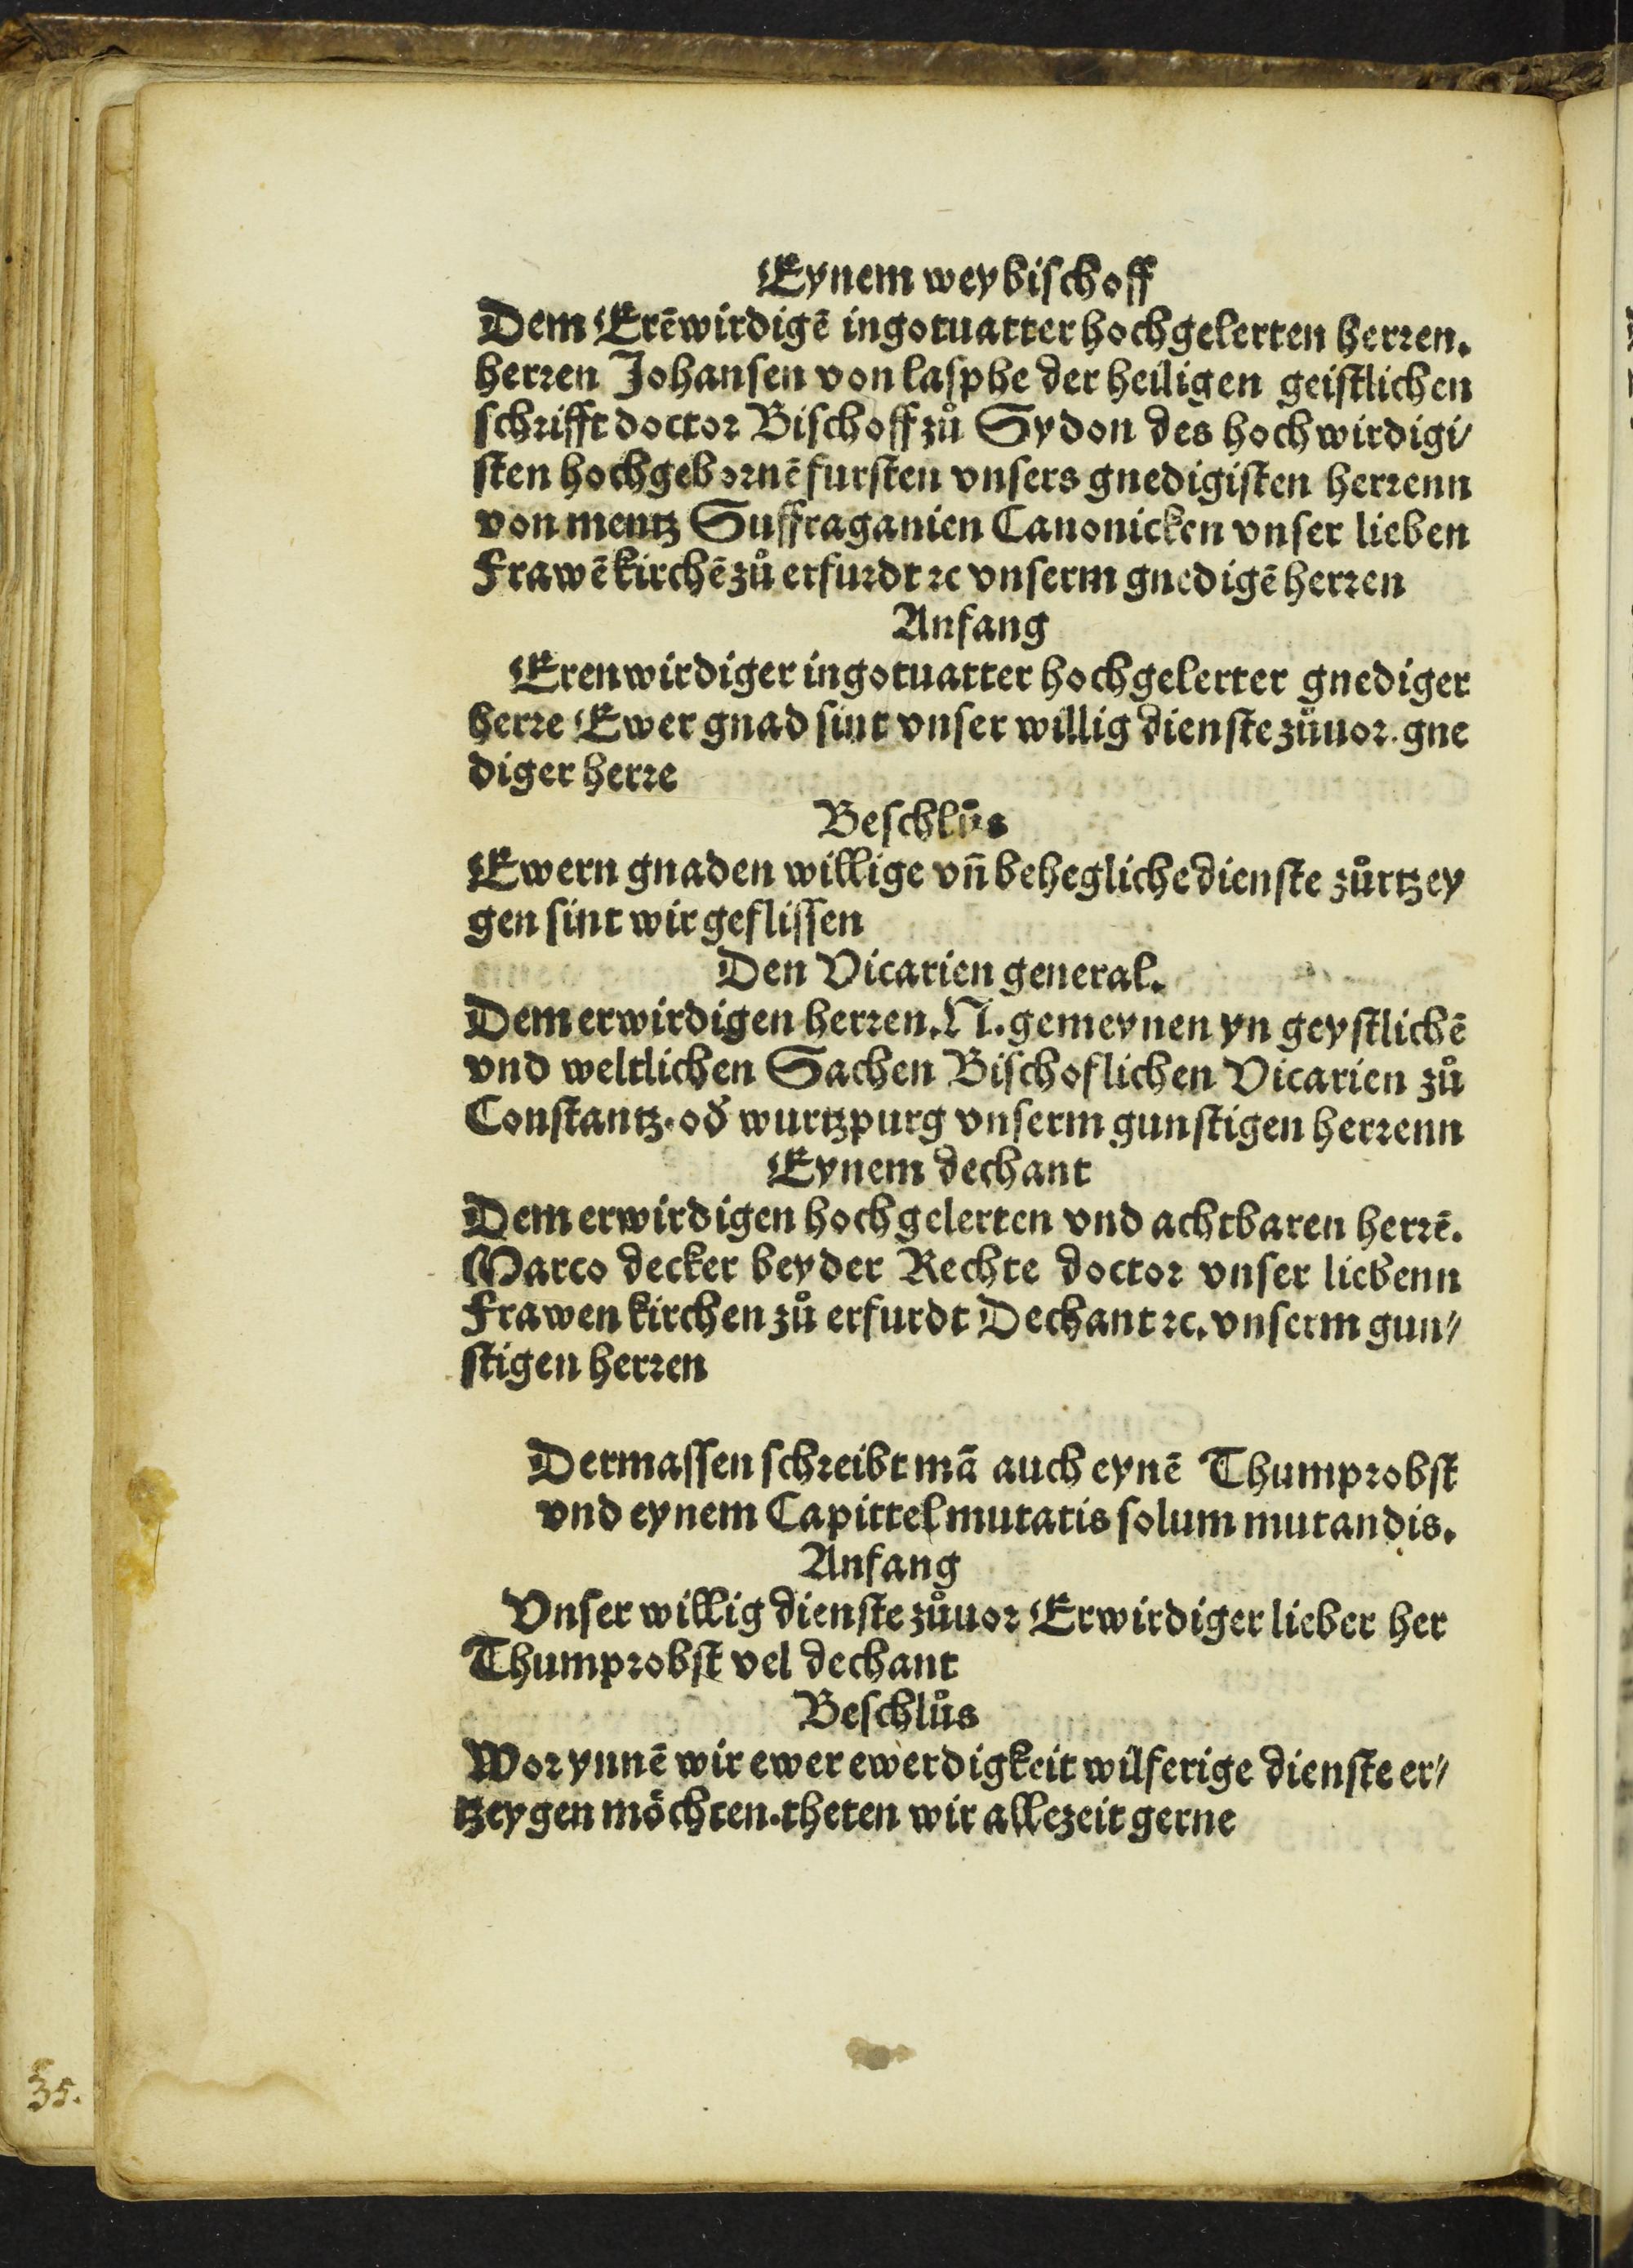 Eynem weybischoff
Dem Erēwirdigē ingotuatter hochgelerten herren.
herren Johansen von lasphe der heiligen geistlichen
schrifft doctor Bischoff zů Sydon des hochwirdigi/
sten hochgebornē fursten vnsers gnedigisten herrenn
von mentz Suffraganien Canonicken vnser lieben
Frawē kirchē zů erfurdt ꝛc vnserm gnedigē herren
Anfang
Erenwirdiger ingotuatter hochgelerter gnediger
herre Ewer gnad sint vnser willig dienste zůuor. gne
diger herre
Beschlůs
Ewern gnaden willige vn̄ behegliche dienste zůrtzey
gen sint wir geflissen
Den Vicarien general.
Dem erwirdigen herren. N. gemeynen yn geystlichē
vnd weltlichen Sachen Bischoflichen Vicarien zů
Constantz. od̓ wurtzpurg vnserm gunstigen herrenn
Eynem dechant
Dem erwirdigen hochgelerten vnd achtbaren herrē.
Marco decker beyder Rechte doctor vnser liebenn
Frawen kirchen zů erfurdt Dechant ꝛc. vnserm gun/
stigen herren
Dermassen schreibt mā auch eynē Thumprobst
vnd eynem Capittel mutatis solum mutandis.
Anfang
Vnser willig dienste zůuor Erwirdiger lieber her
Thumprobst vel dechant
Beschlůs
Worynnē wir ewer ewerdigkeit wilferige dienste er/
tzeygen möchten. theten wir allezeit gerne
35.